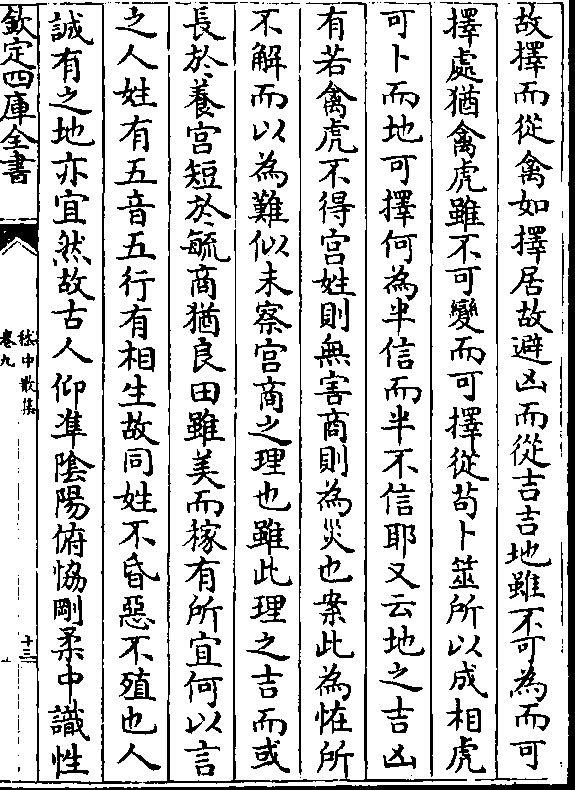 故擇而從禽如擇居故避凶而從吉吉地雖不可為而可
擇處猶禽虎雖不可變而可擇從苟卜筮所以成相虎
可卜而地可擇何為半信而半不信耶又云地之吉凶
有若禽虎不得宫姓則無害商則為災也案此為怪所
不解而以為難似未察宫商之理也雖此理之吉而或
長於養宫短於毓商猶良田雖美而稼有所宜何以言
之人姓有五音五行有相生故同姓不昏惡不殖也人
誠有之地亦宜然故古人仰凖隂陽俯恊剛柔中識性
欽定四庫全書
嵇中散集
卷九
十三